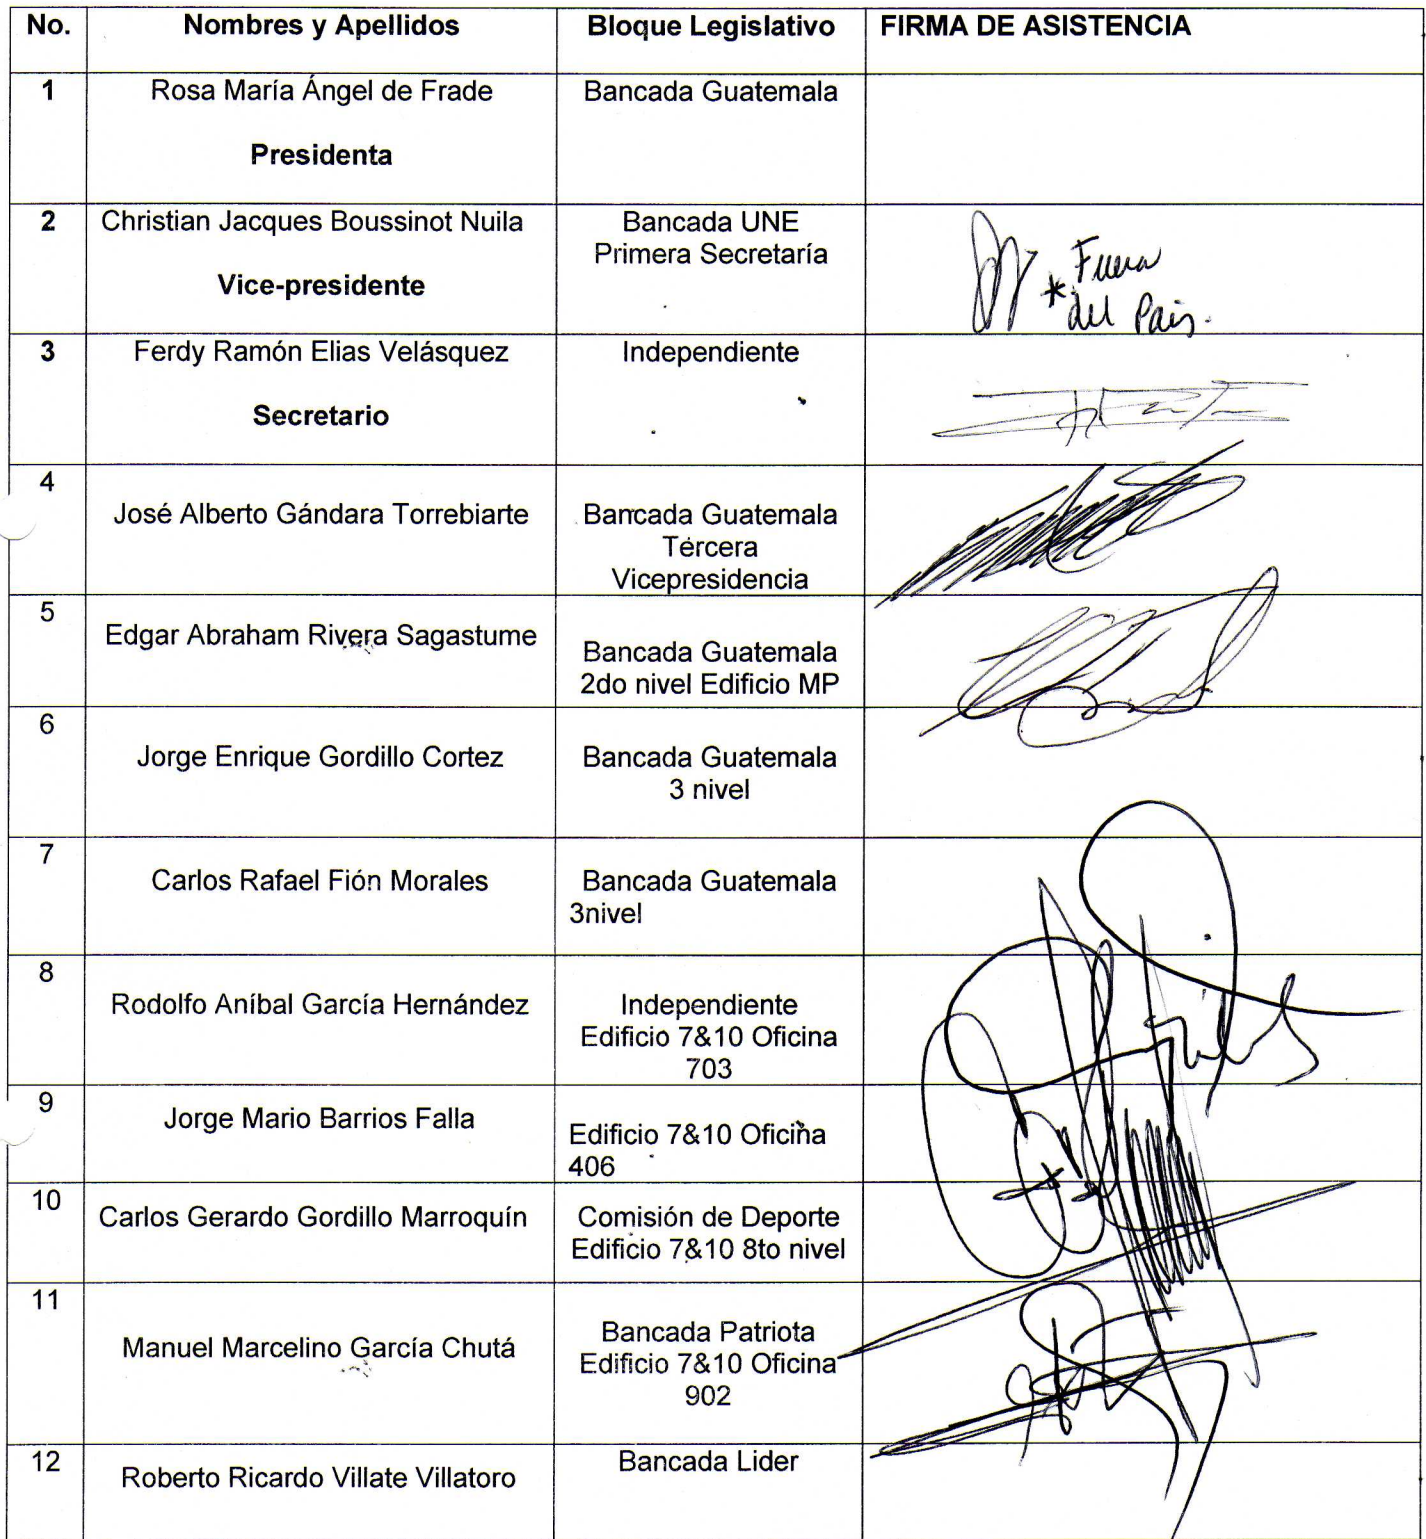 No. Nombres y Apellidos Bloque Legislativo FIRMA DE ASISTENCIA
1 Rosa María Ángel de Frade Bancada Guatemala
Presidenta
2 Christian Jacques Boussinot Nuila Bancada UNE
Primera Secretaría
Vice-presidente
* Fuera
del Pais.
3 Ferdy Ramón Elias Velásquez Independiente
Secretario
4
José Alberto Gándara Torrebiarte Bancada Guatemala
Tercera
Vicepresidencia
5
Edgar Abraham Rivera Sagastume
Bancada Guatemala
2do nivel Edificio MP
6
Jorge Enrique Gordillo Cortez Bancada Guatemala
3 nivel
7
Carlos Rafael Fión Morales Bancada Guatemala
3nivel
8
Rodolfo Aníbal García Hernández Independiente
Edificio 7&10 Oficina
703
9
Jorge Mario Barrios Falla
Edificio 7&10 Oficina
406
10
Carlos Gerardo Gordillo Marroquín Comisión de Deporte
Edificio 7&10 8to nivel
11
Manuel Marcelino García Chutá
Bancada Patriota
Edificio 7&10 Oficina
902
12
Roberto Ricardo Villate Villatoro
Bancada Lider